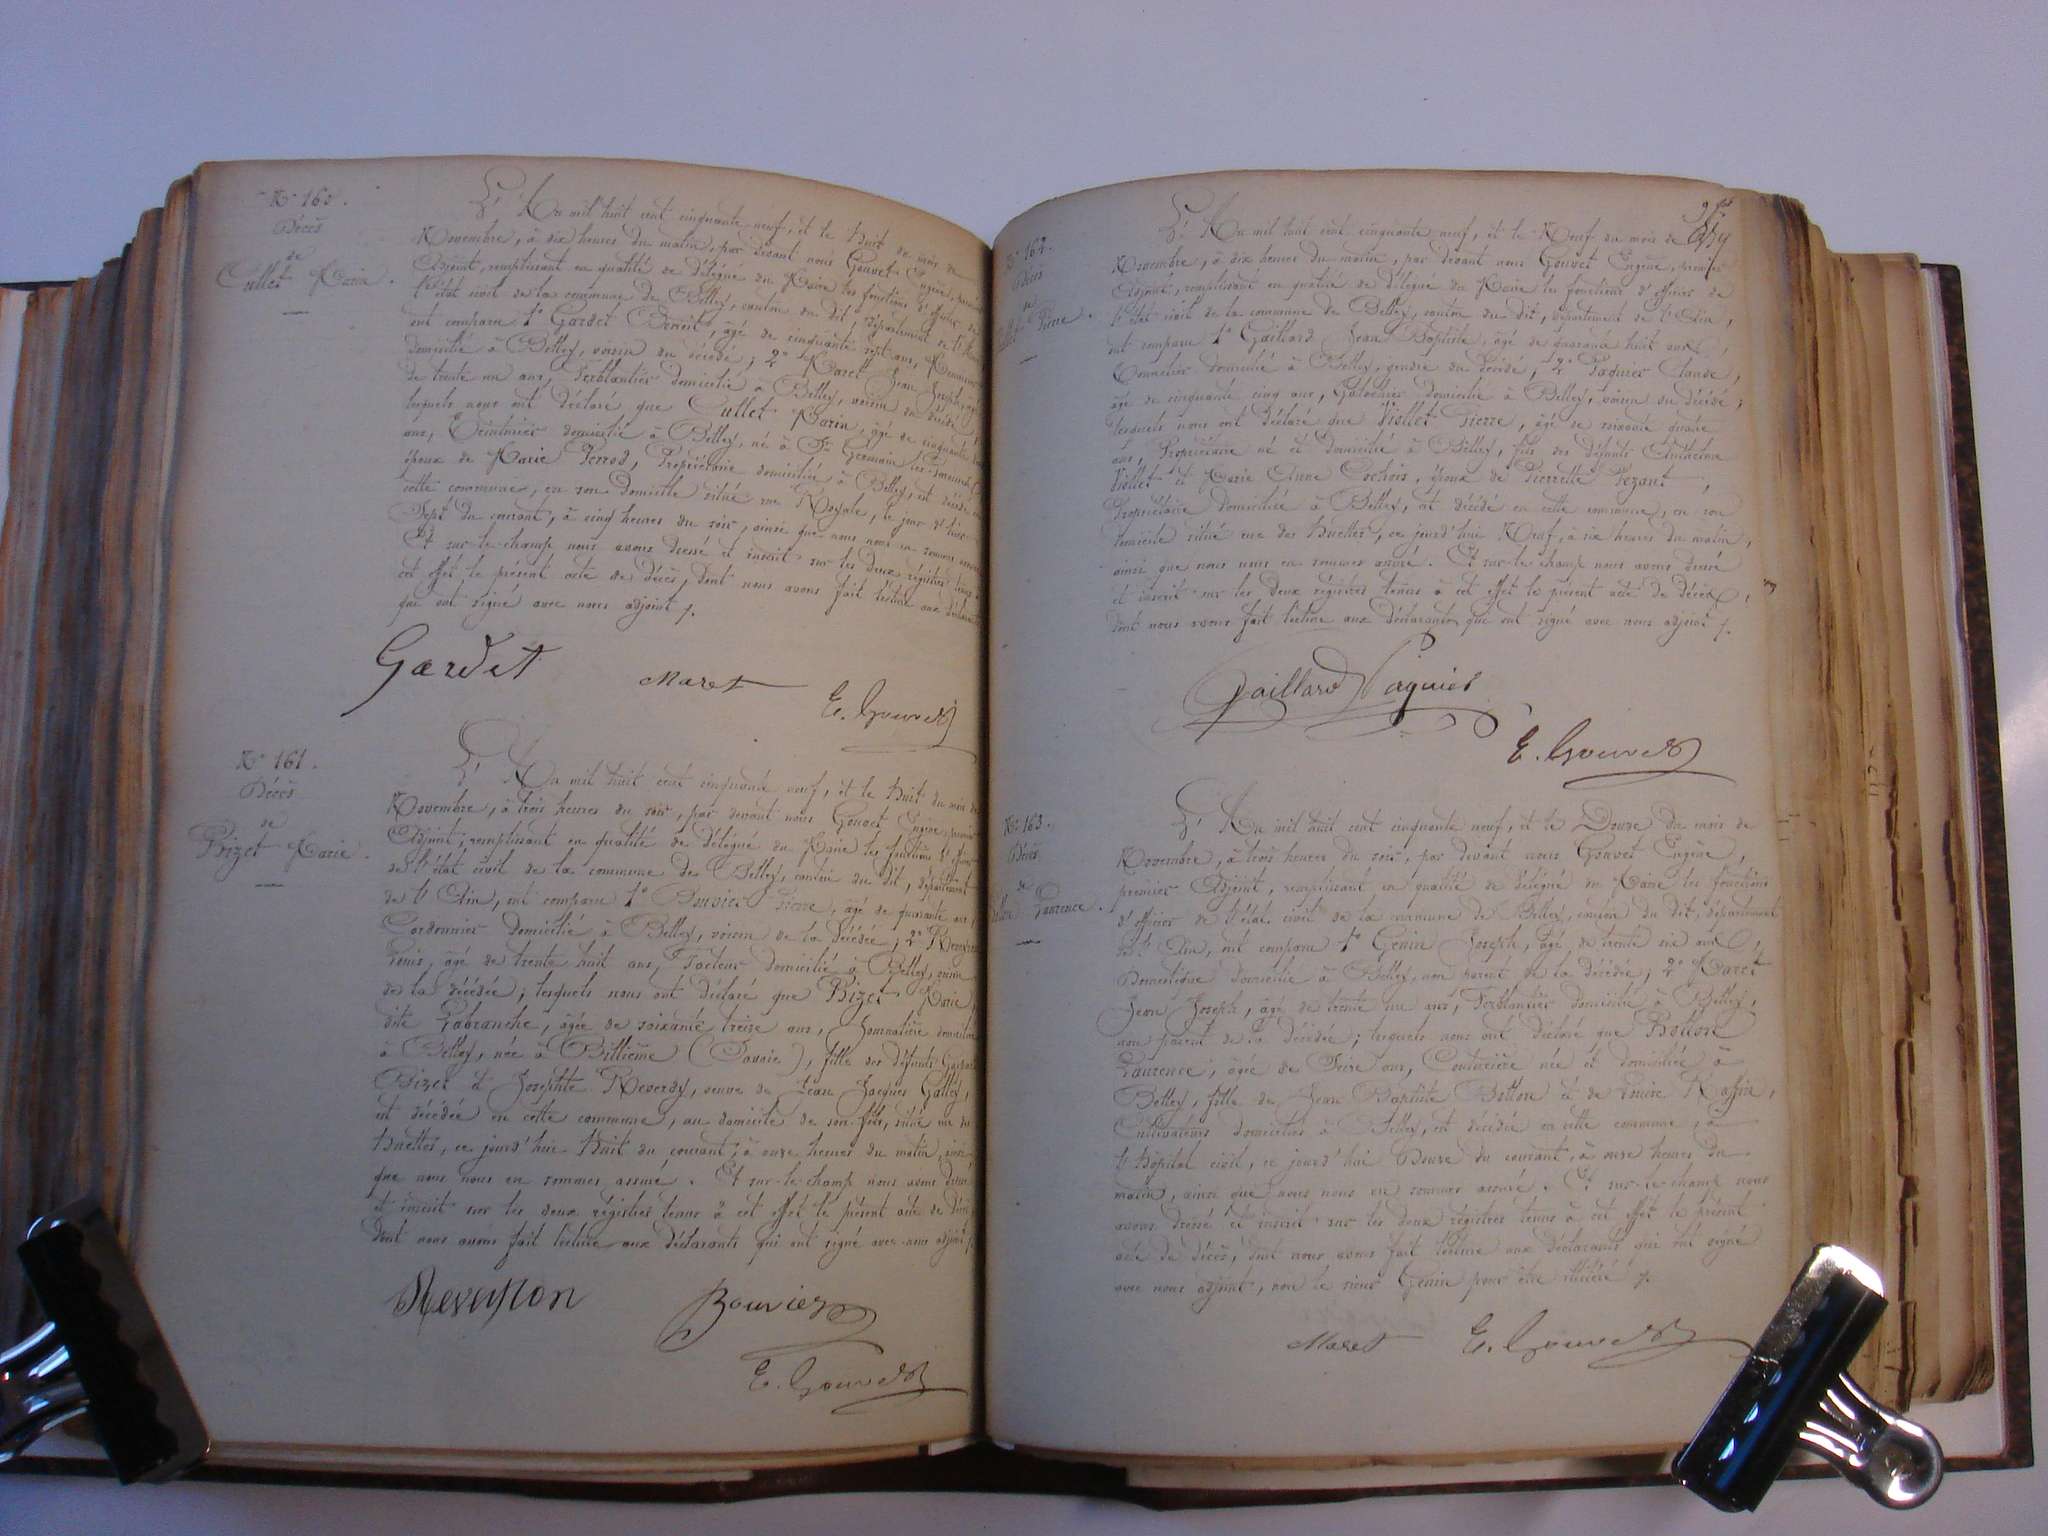 N° 160.
Décès
de
Cullet Marin.
L'An mil huit cent cinquante neuf, et le huit du mois de
Novembre, à dix heures du matin, par devant nous Gouvet Eugène,
Adjoint, remplissant en qualité de délégué du Maire les fonctions d'officier de
l'état civil de la commune de Belley, canton du dit, département de l'Ain
ont comparu 1° Gardet Benoit, âgé de cinquante sept ans,
domicilié à Belley, voisin du décédé; 2° Maret Jean Joseph, âgé
de trente un ans, Ferblantier domicilié à Belley, voisin du décédé
lesquels nous ont déclaré que Cullet Marin, âgé de cinquante
ans, domicilié à Belley, né à St Germain les
époux de Marie Perrod, Propriétaire domiciliée à Belley, est décédé en
cette commune, en son domicile situé rue Royale, le jour d'hier
Sept du courant, à cinq heures du soir, ainsi que nous nous en sommes assuré
Et sur-le-champ nous avons dressé et inscrit sur les deux régistres tenus à
cet effet le présent acte de décès, dont nous avons fait lecture aux déclarants
qui ont signé avec nous adjoint /.
Gardet Maret E. Gouvet
N° 161.
Décès
de
Bizet Marie.
L'An mil huit cent cinquante neuf, et le huit du mois de
Novembre, à trois heures du soir, par devant nous Gouvet Eugène, premier
Adjoint, remplissant en qualité de délégué du Maire les fonctions d'officier
de l'état civil de la commune de Belley, canton du dit, département
de l'Ain, ont comparu 1° Bouvier Pierre, âgé de quarante ans,
Cordonnier domicilié à Belley, voisin de la décédée; 2° Reveyron
Louis, âgé de trente huit ans, Facteur domicilié à Belley, voisin
de la décédée; lesquels nous ont déclaré que Bizet Marie,
dite Labranche, âgée de soixante treize ans, Journalière domiciliée
à Belley, née à Billième (Savoie), fille des défunts
Bizet et Josephte Reverdy, veuve de Jean Jacques Galley,
est décédée en cette commune, au domicile de son fils, situé rue des
huettes, ce jourd'hui huit du courant, à onze heures du matin, ainsi
que nous nous en sommes assuré. Et sur-le-champ nous avons dressé
et inscrit sur les deux régistres tenus à cet effet le présent acte de décès,
dont nous avons fait lecture aux déclarants qui ont signé avec nous adjoint /.
Reveyron Bouvier
E. Gouvet
N° 162.
Décès
de
Pierre.
L'An mil huit cent cinquante neuf, et le Neuf du mois de
Novembre, à dix heures du matin, par devant nous Gouvet Eugène, premier
Adjoint, remplissant en qualité de délégué du Maire les fonctions d'officier de
l'état civil de la commune de Belley, canton du dit, département de l'Ain,
ont comparu 1° Gaillard Jean Baptiste, âgé de quarante huit ans,
Tonnelier domicilié à Belley, gendre du décédé; 2° Paquier Claude,
âgé de cinquante cinq ans, Galochier domicilié à Belley, voisin du décédé;
lesquels nous ont déclaré que Viollet Pierre, âgé de soixante quatre
ans, Propriétaire né et domicilié à Belley, fils des défunts Anthelme
Viollet et Marie Anne Cochois, époux de Pierrette Pezant,
Propriétaire domiciliée à Belley, est décédé en cette commune, en son
domicile situé rue des huettes, ce jourd'hui Neuf, à six heures du matin,
ainsi que nous nous en sommes assuré. Et sur-le-champ nous avons dressé
et inscrit sur les deux régistres tenus à cet effet le présent acte de décès,
dont nous avons fait lecture aux déclarants qui ont signé avec nous adjoint /.
Gaillard Paquier
E. Gouvet
N° 163.
Décès
de
Laurence.
L'An mil huit cent cinquante neuf, et le Douze du mois de
Novembre, à trois heures du soir, par devant nous Gouvet Eugène,
premier Adjoint, remplissant en qualité de délégué du Maire les fonctions
d'officier de l'état civil de la commune de Belley, canton du dit, département
de l'Ain, ont comparu 1° Genin Joseph, âgé de trente six ans,
Domestique domicilié à Belley, non parent de la décédée; 2° Maret
Jean Joseph, âgé de trente un ans, Ferblantier domicilié à Belley,
non parent de la décédée; lesquels nous ont déclaré que Botton
Laurence, âgée de Seize ans, Couturière née et domiciliée à
Belley, fille de Jean Baptiste Botton et de Louise Raffin,
Cultivateurs domiciliés à Belley, est décédée en cette commune, à
l'hôpital civil, ce jourd'hui Douze du courant, à onze heures du
matin, ainsi que nous nous en sommes assuré. Et sur-le-champ nous
avons dressé et inscrit sur les deux régistres tenus à cet effet le présent
acte de décès, dont nous avons fait lecture aux déclarants qui ont signé
avec nous adjoint, non le sieur Genin pour être illitéré /.
Maret E. Gouvet